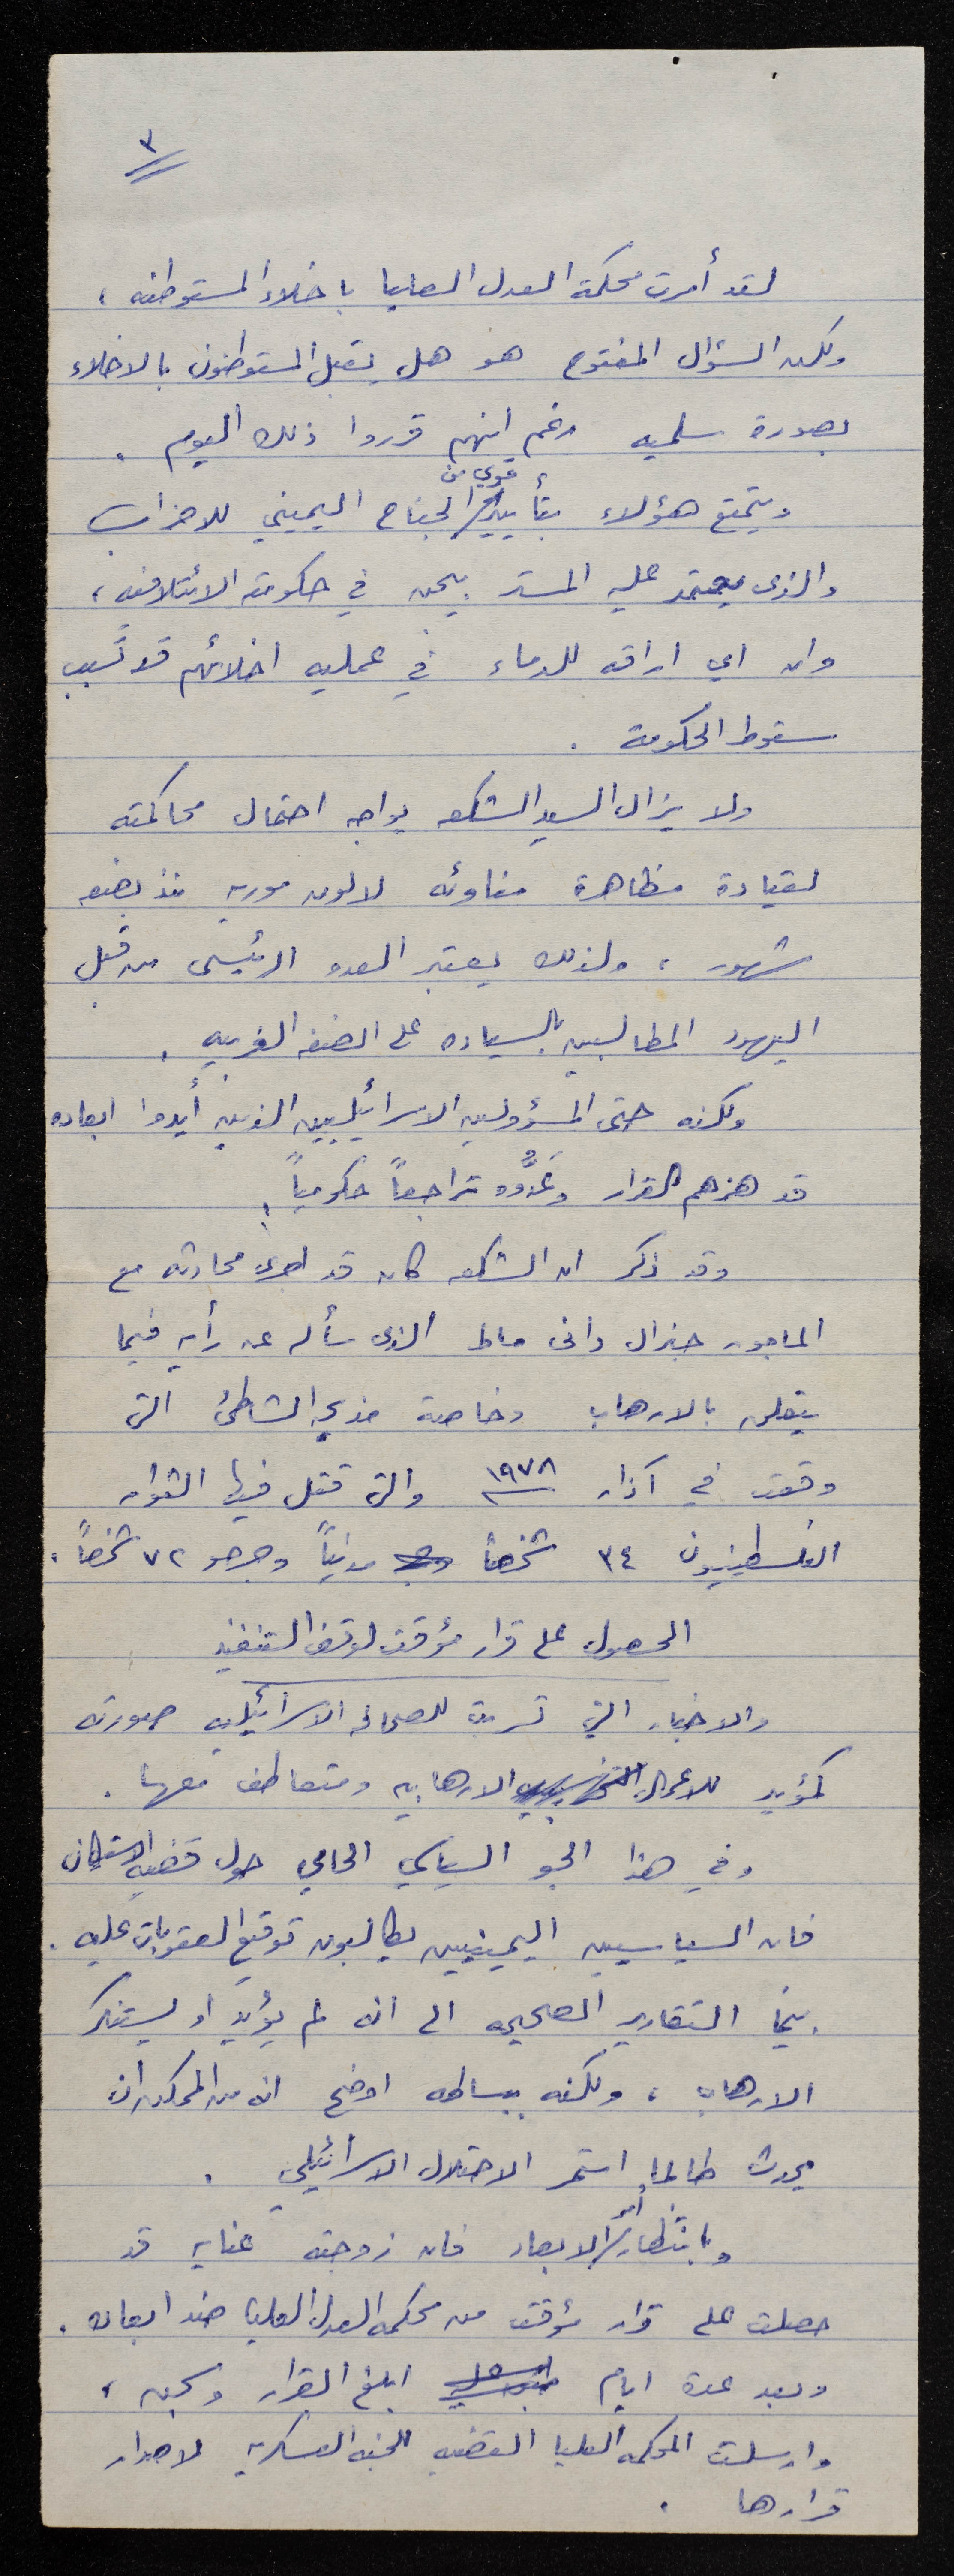 ٣
لقد أمرت محكمة العدل العليا باخلاء المستوطنه ،
ولكن السؤال المفتوح هو هل يقبل المستوطنون بالاخلاء
بصورة سلميه رغم انهم قرروا ذلك اليوم .
ويتمتع هؤلاء بتأييد قوي من الجناح اليميني للاحزاب
والذي يعتمد عليه المستر بيجن في حكومته الائتلافيه ،
وان اي اراقه للدماء في عمليه اخلائهم قد تسبب
سقوط الحكومة .
ولا يزال السيد الشكعه يواجه احتمال محاكمته
لقيادة مظاهرة مناوئه لالون موريه منذ بضعه
شهور ، ولذلك يعتبر العدو الرئيسي من قبل
اليهود المطالبين بالسياده على الضفه الغربيه .
ولكنه حتى المسؤولين الاسرائيليين الذين أيدوا ابعاده
قد هزهم القرار وعَدُّوه تراجعاً حكومياً .
وقد ذكر ان الشكعه كان قد اجرى محادثه مع
الماجور جنرال داني ماط الذي سأله عن رأيه فيما
يتعلق بالارهاب وخاصة مذبحه الشاطئ التي
وقعت في آذار ١٩٧٨ والتي قتل فيها الثوار
الفلسطينيون ٣٤ شخصاً مدنياً وجرحو ٧٢ شخصاً .
الحصول على قرار مؤقت لوقف التنفيذ
والاخبار التي تسربت للصحافه الاسرائيليه صورته
كمؤيد للاعمال الارهابيه ومتعاطف معها .
وفي هذا الجو السياسي الحامي حول قضيه الاستيطان
فان السياسيين اليمينيين يطالبون توقيع العقوبات عليه .
بينما التقارير الصحيحه الى انه لم يؤيد او يستنكر
الارهاب ، ولكنه ببساطه اوضح انه من الممكن ان
يحدث طالما استمر الاحتلال الاسرائيلي .
وبانتظار أمر الابعاد فان زوجته عنايه قد
حصلت على قرار مؤقت من محكمه العدل العليا ضد ابعاده .
وبعد عدة ايام ابلغ القرار وسجن ،
وارسلت المحكمه العليا القضيه للجنه العسكريه لاصدار
قرارها .